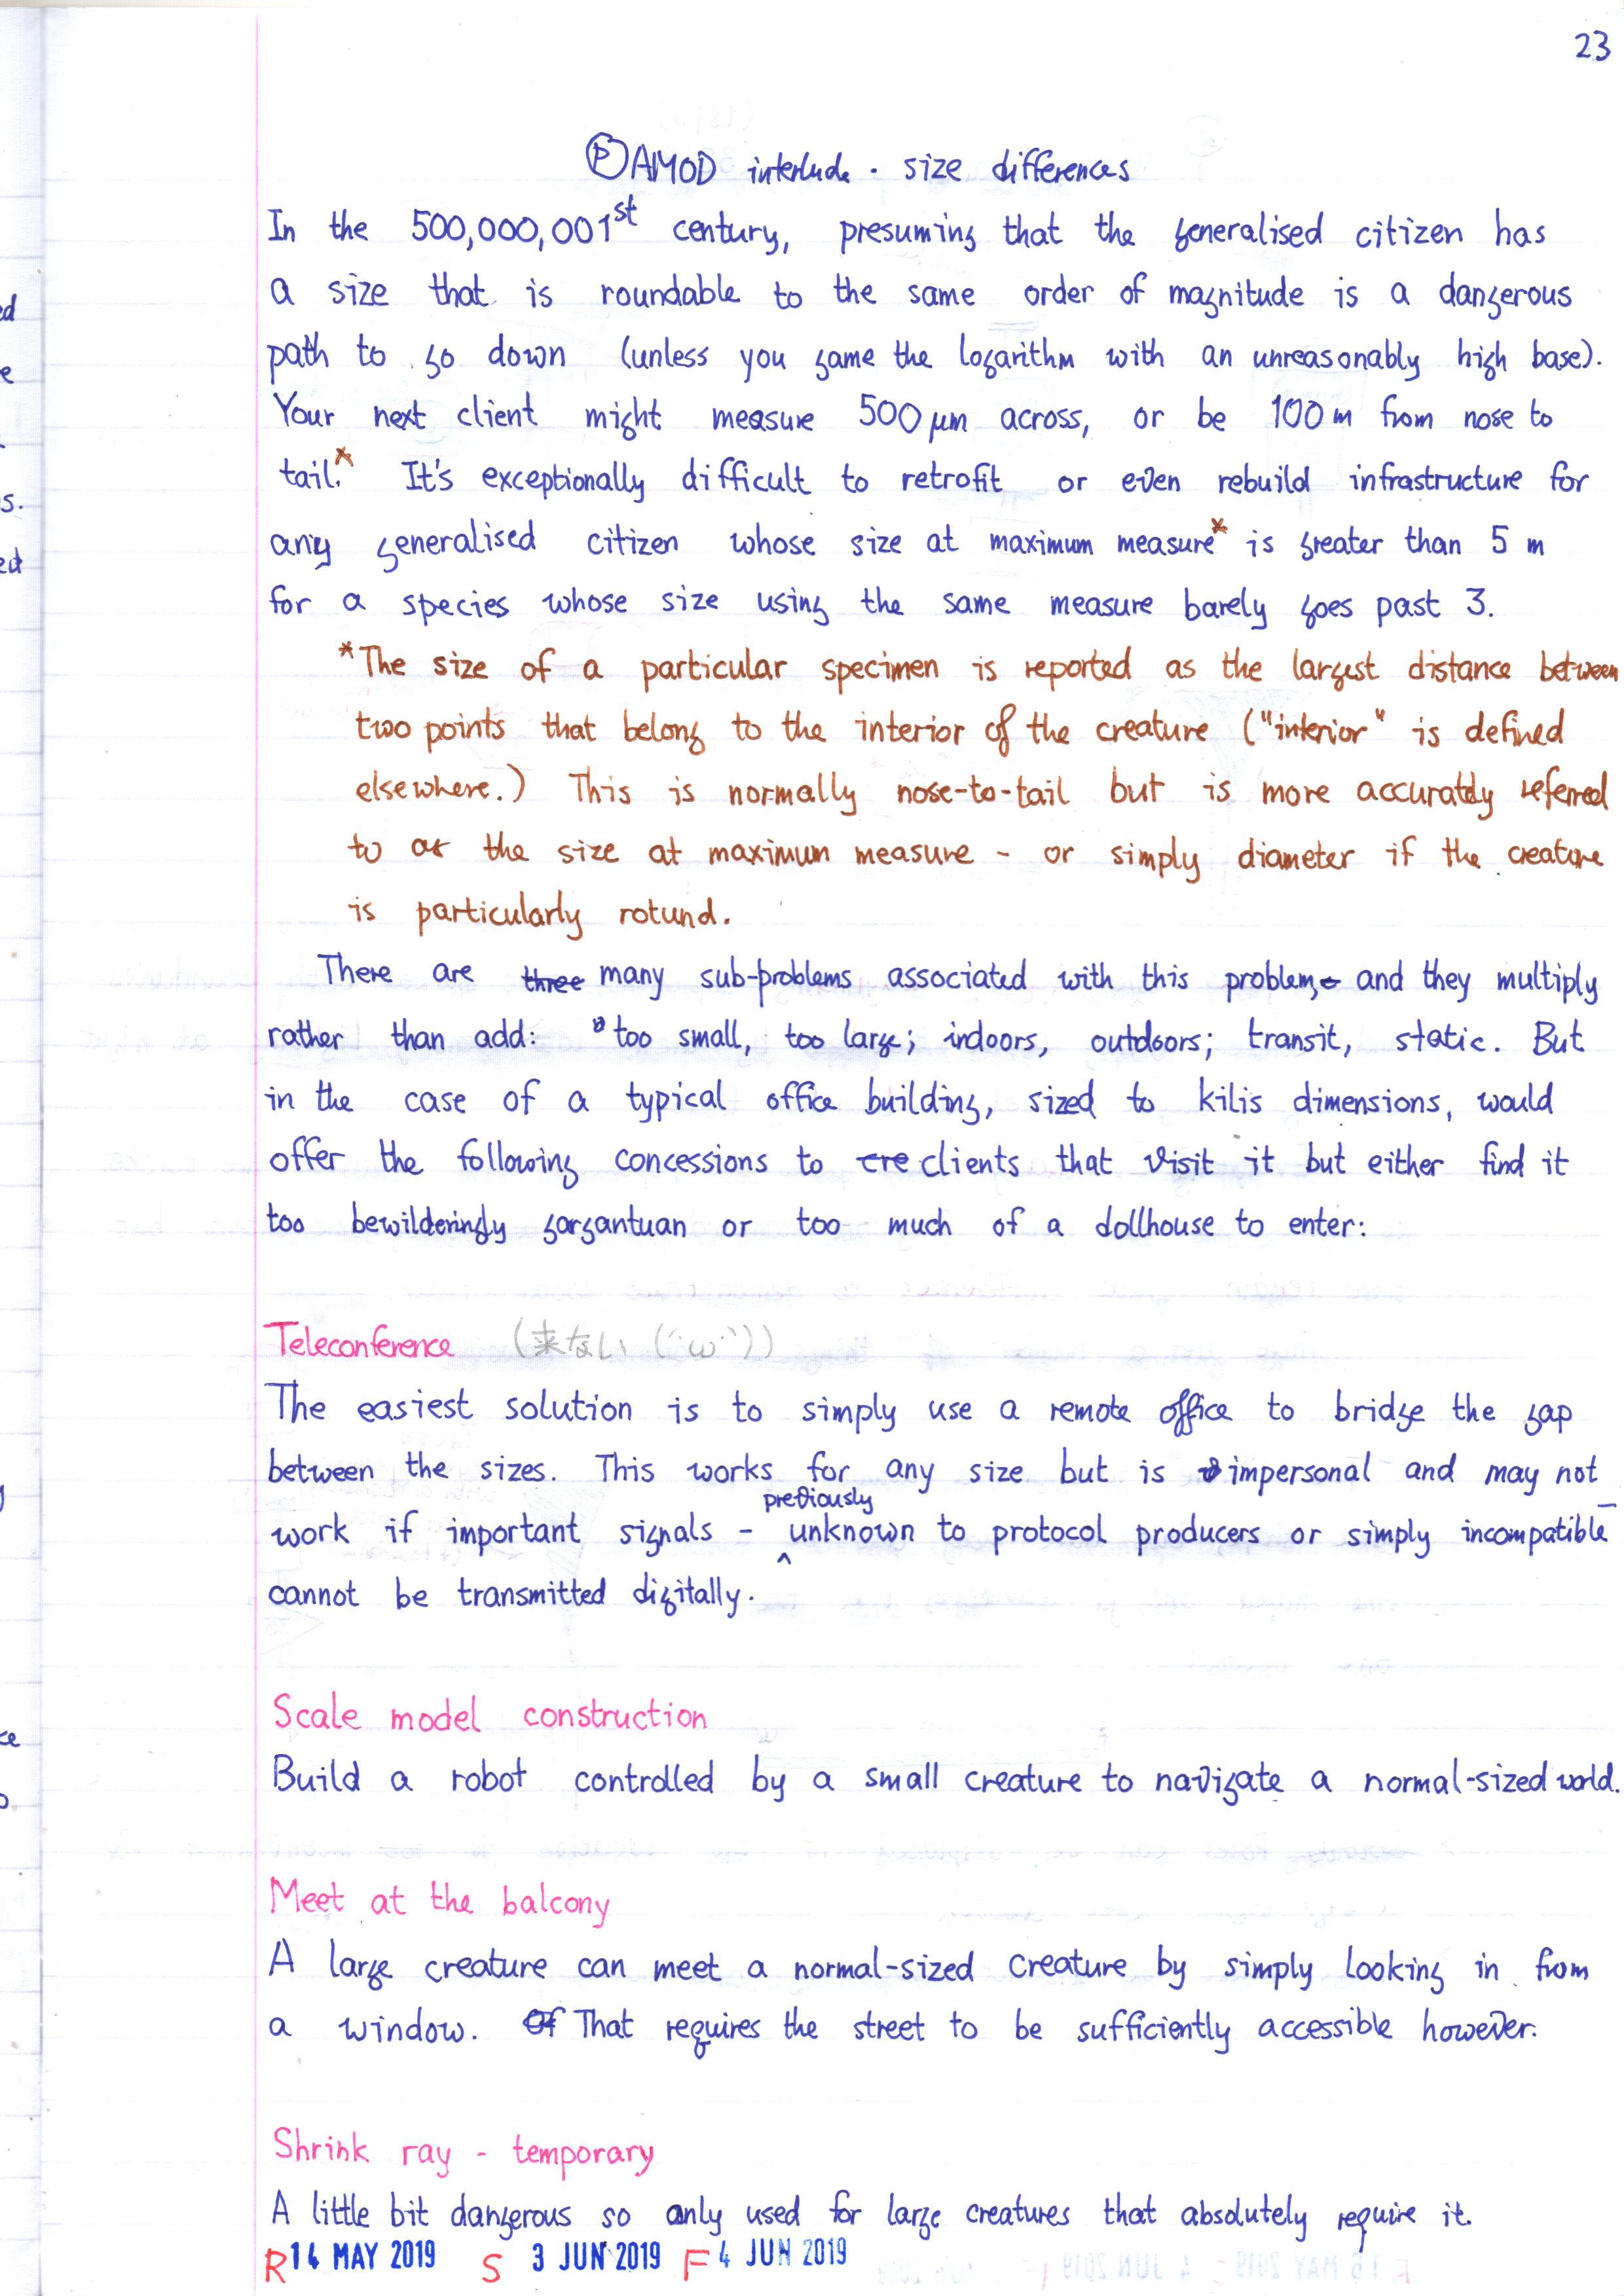 23
Ⓟ AMOD interlude · size differences
In the 500,000,001st century, presuming that the generalised citizen has
a size that is roundable to the same order of magnitude is a dangerous
path to go down (unless you game the logarithm with an unreasonably high base).
Your next client might measure 500 μm across, or be 100 m from nose to
tail.* It's exceptionally difficult to retrofit or even rebuild infrastructure for
any generalised citizen whose size at maximum measure* is greater than 5 m
for a species whose size using the same measure barely goes past 3.
*The size of a particular specimen is reported as the largest distance between
two points that belong to the interior of the creature ("interior" is defined
elsewhere.) This is normally nose-to-tail but is more accurately referred
to as the size at maximum measure - or simply diameter if the creature
is particularly rotund.
There are three many sub-problems associated with this problem, and they multiply
rather than add: too small, too large; indoors, outdoors; transit, static. But
in the case of a typical office building, sized to kilis dimensions, would
offer the following concessions to cre clients that visit it but either find it
too bewilderingly gargantuan or too much of a dollhouse to enter:
Teleconference (来ない (´·ω·`))
The easiest solution is to simply use a remote office to bridge the gap
between the sizes. This works for any size but is impersonal and may not
work if important signals - previously unknown to protocol producers or simply incompatible -
cannot be transmitted digitally.
Scale model construction
Build a robot controlled by a small creature to navigate a normal-sized world.
Meet at the balcony
A large creature can meet a normal-sized creature by simply looking in from
a window. Of That requires the street to be sufficiently accessible however.
Shrink ray - temporary
A little bit dangerous so only used for large creatures that absolutely require it.
R 14 MAY 2019 S 3 JUN 2019 F 4 JUN 2019